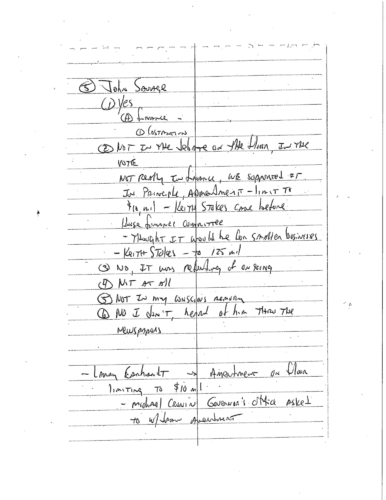 ⑤ John Savage
① Yes
Ⓐ Finance -
①
② NOT IN THE debate on the floor, IN THE
VOTE
NOT Really IN finance, WE supported IT
IN Principle, Amendment - limit TO
$10 mil - KEITH STOKES came before
House finance committee
- Thought IT would be for smaller businesses
- KEITH STOKES - to 125 mil
③ NO, IT was
④ NOT AT All
⑤ NOT IN my conscious memory
⑥ NO I don't, heard of him Thru THE
Newspapers
- Larry Earhardt → Amendment on floor
limiting TO $10 mil
- michael Governor's office asked
to w/draw Amendment